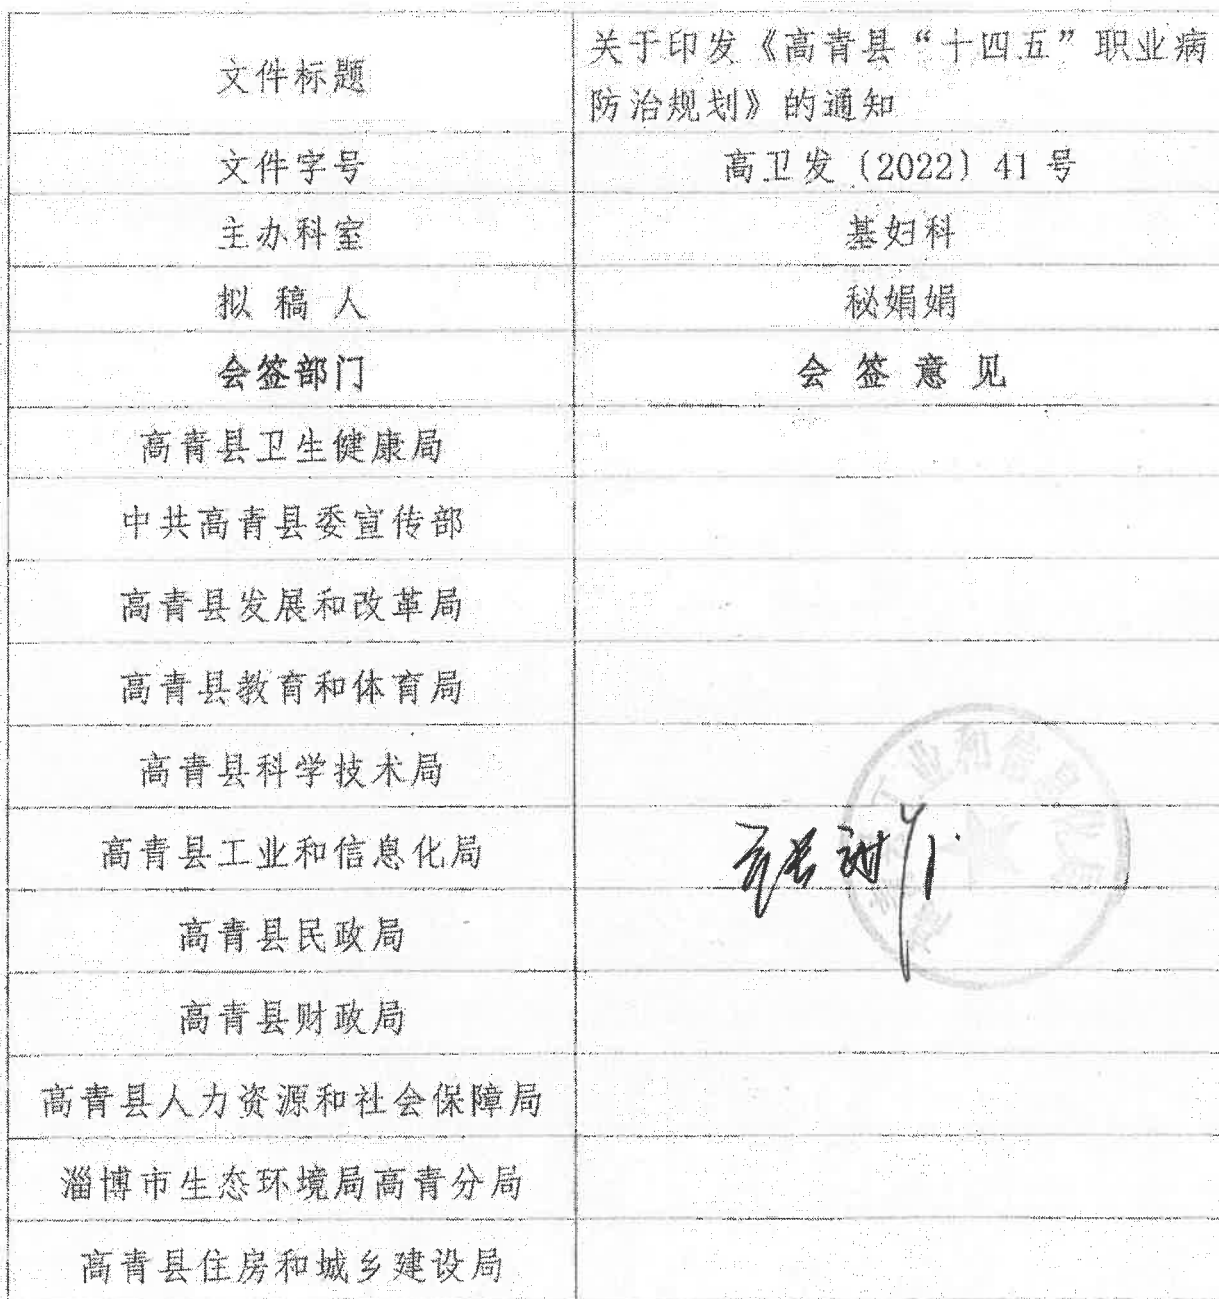 文件标题
关于印发《高青县“十四五”职业病
防治规划》的通知
文件字号
高卫发〔2022〕41号
主办科室
基妇科
拟稿人
秘娟娟
会签部门
会签意见
高青县卫生健康局
中共高青县委宣传部
高青县发展和改革局
高青县教育和体育局
高青县科学技术局
高青县工业和信息化局
高青县民政局
高青县财政局
高青县人力资源和社会保障局
淄博市生态环境局高青分局
高青县住房和城乡建设局